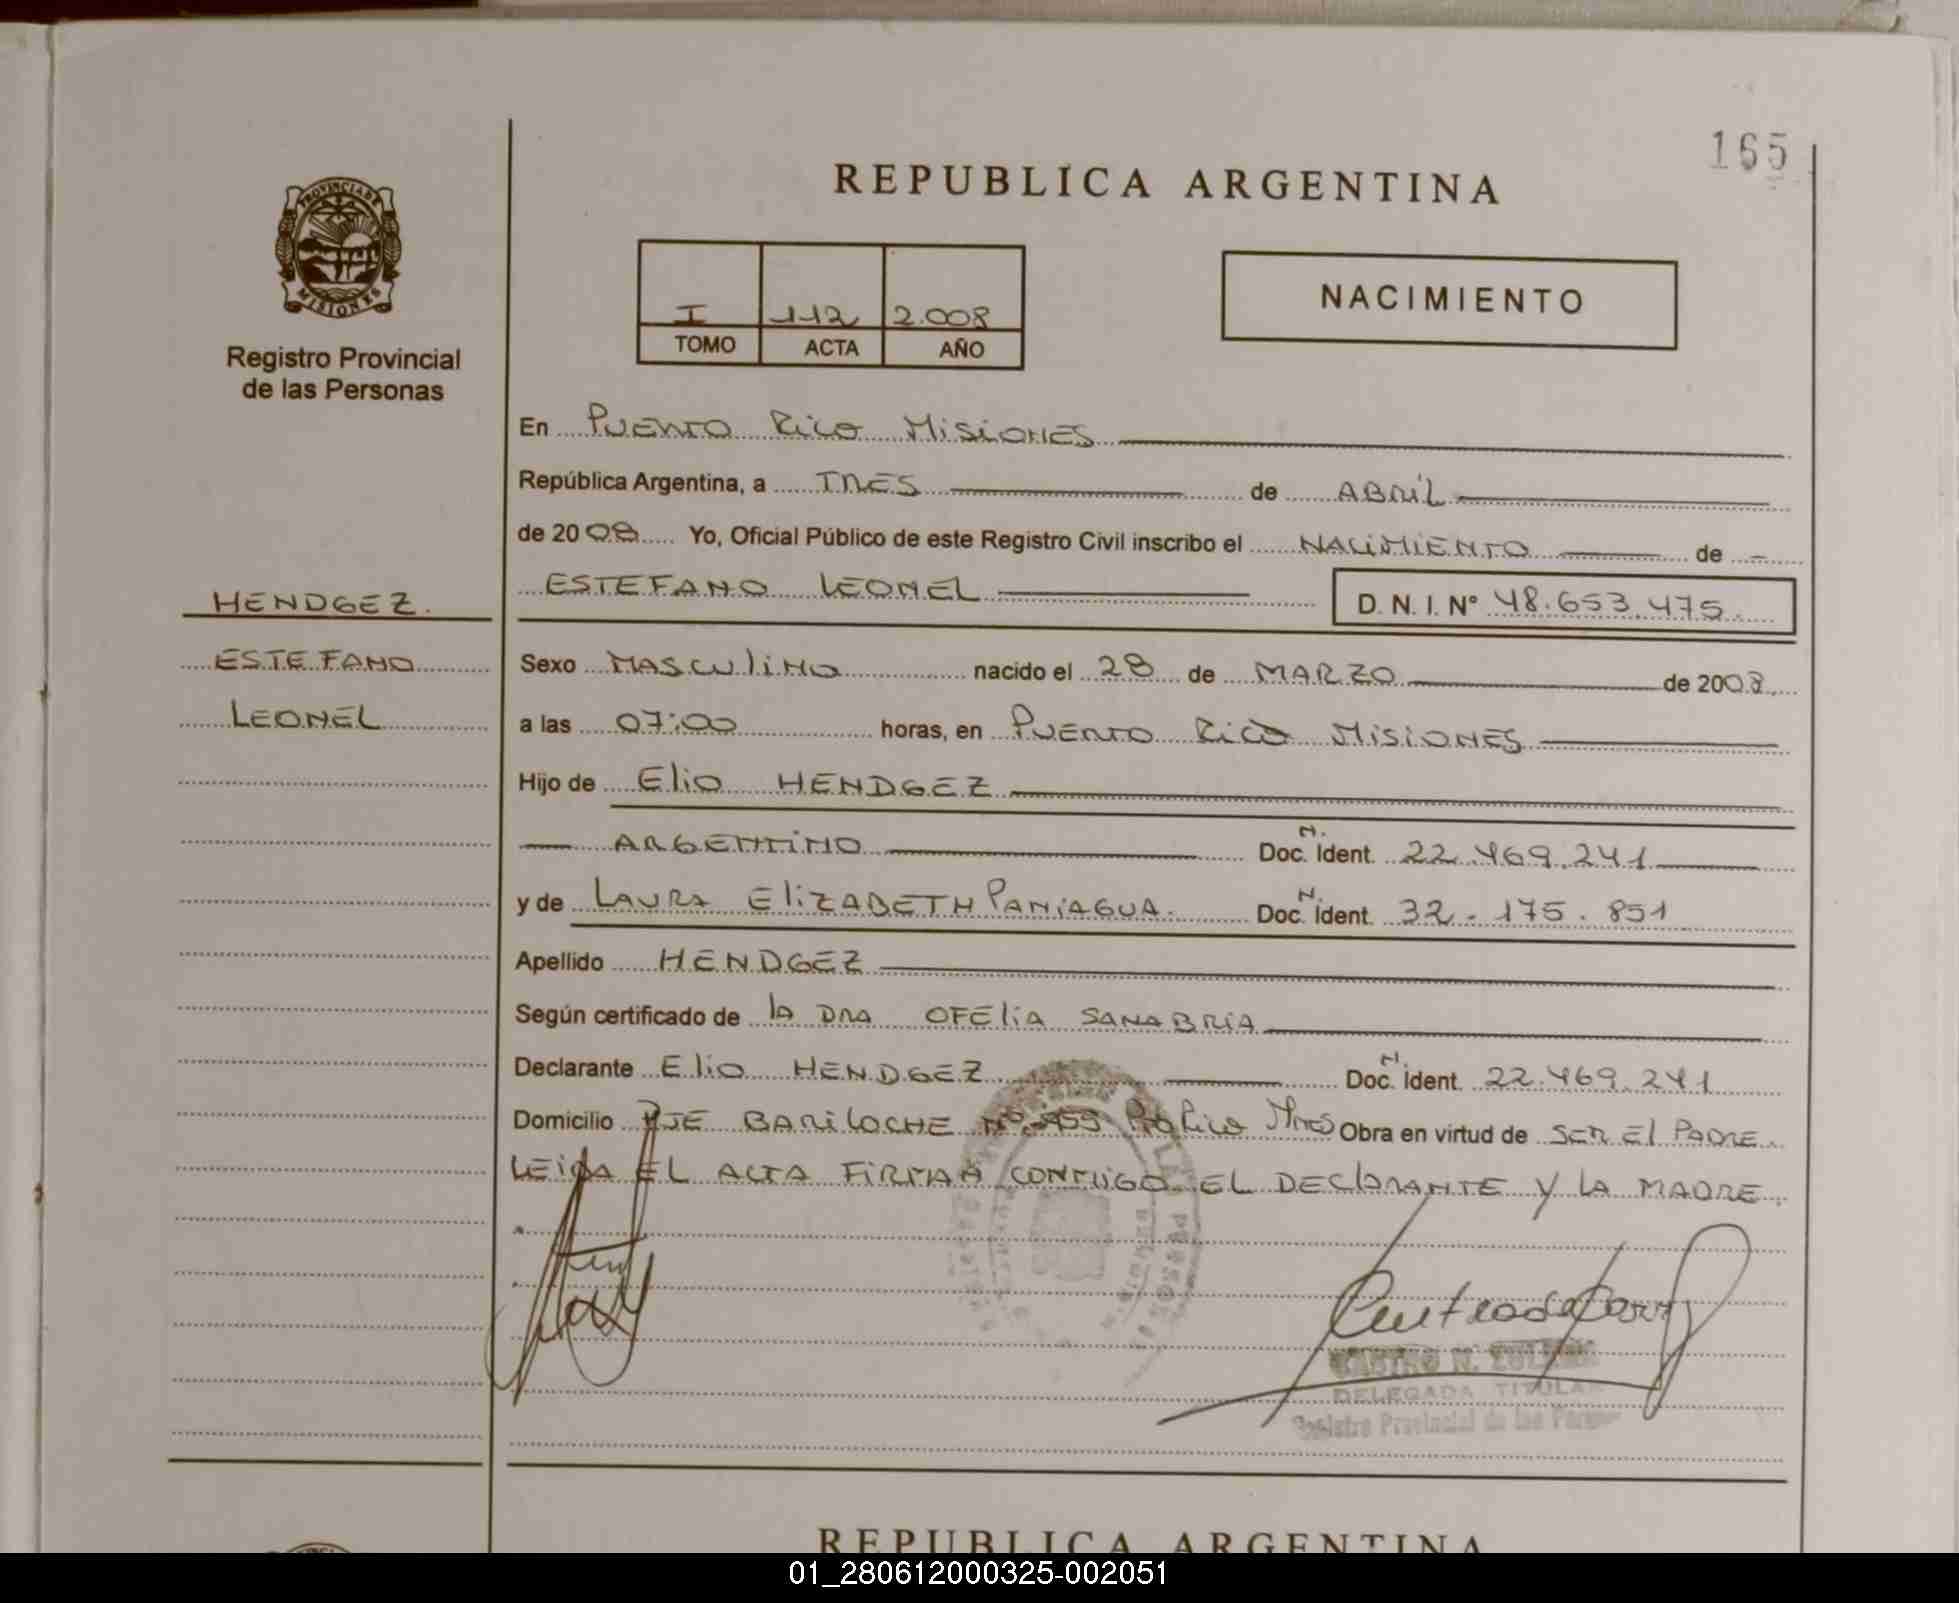 165
REPUBLICA ARGENTINA
PROVINCIA DE
MISIONES
Registro Provincial
de las Personas
I 112 2.008
TOMO ACTA AÑO
NACIMIENTO
En PUERTO RICO MISIONES
República Argentina, a TRES de ABRIL
de 2008 Yo, Oficial Público de este Registro Civil inscribo el NACIMIENTO de
ESTEFANO LEONEL D. N. I. N° 48.653.475.
HENDGEZ.
ESTEFANO
LEONEL
Sexo MASCULINO nacido el 28 de MARZO de 2008.
a las 07:00 horas, en PUERTO RICO MISIONES
Hijo de ELIO HENDGEZ
ARGENTINO Doc. N. Ident. 22.469.241
y de LAURA ELIZABETH PANIAGUA. Doc. N. Ident. 32.175.851
Apellido HENDGEZ
Según certificado de la DRA OFELIA SANABRIA
Declarante ELIO HENDGEZ Doc. N. Ident. 22.469.241
Domicilio PJE BARILOCHE Nº Pto Rico Mnes Obra en virtud de SER EL PADRE
LEIDA EL ACTA FIRMAN CONMIGO EL DECLARANTE Y LA MADRE.
CASTRO N. ZULEMA
DELEGADA TITULAR
Registro Provincial de las Personas
REPUBLICA ARGENTINA
01_280612000325-002051